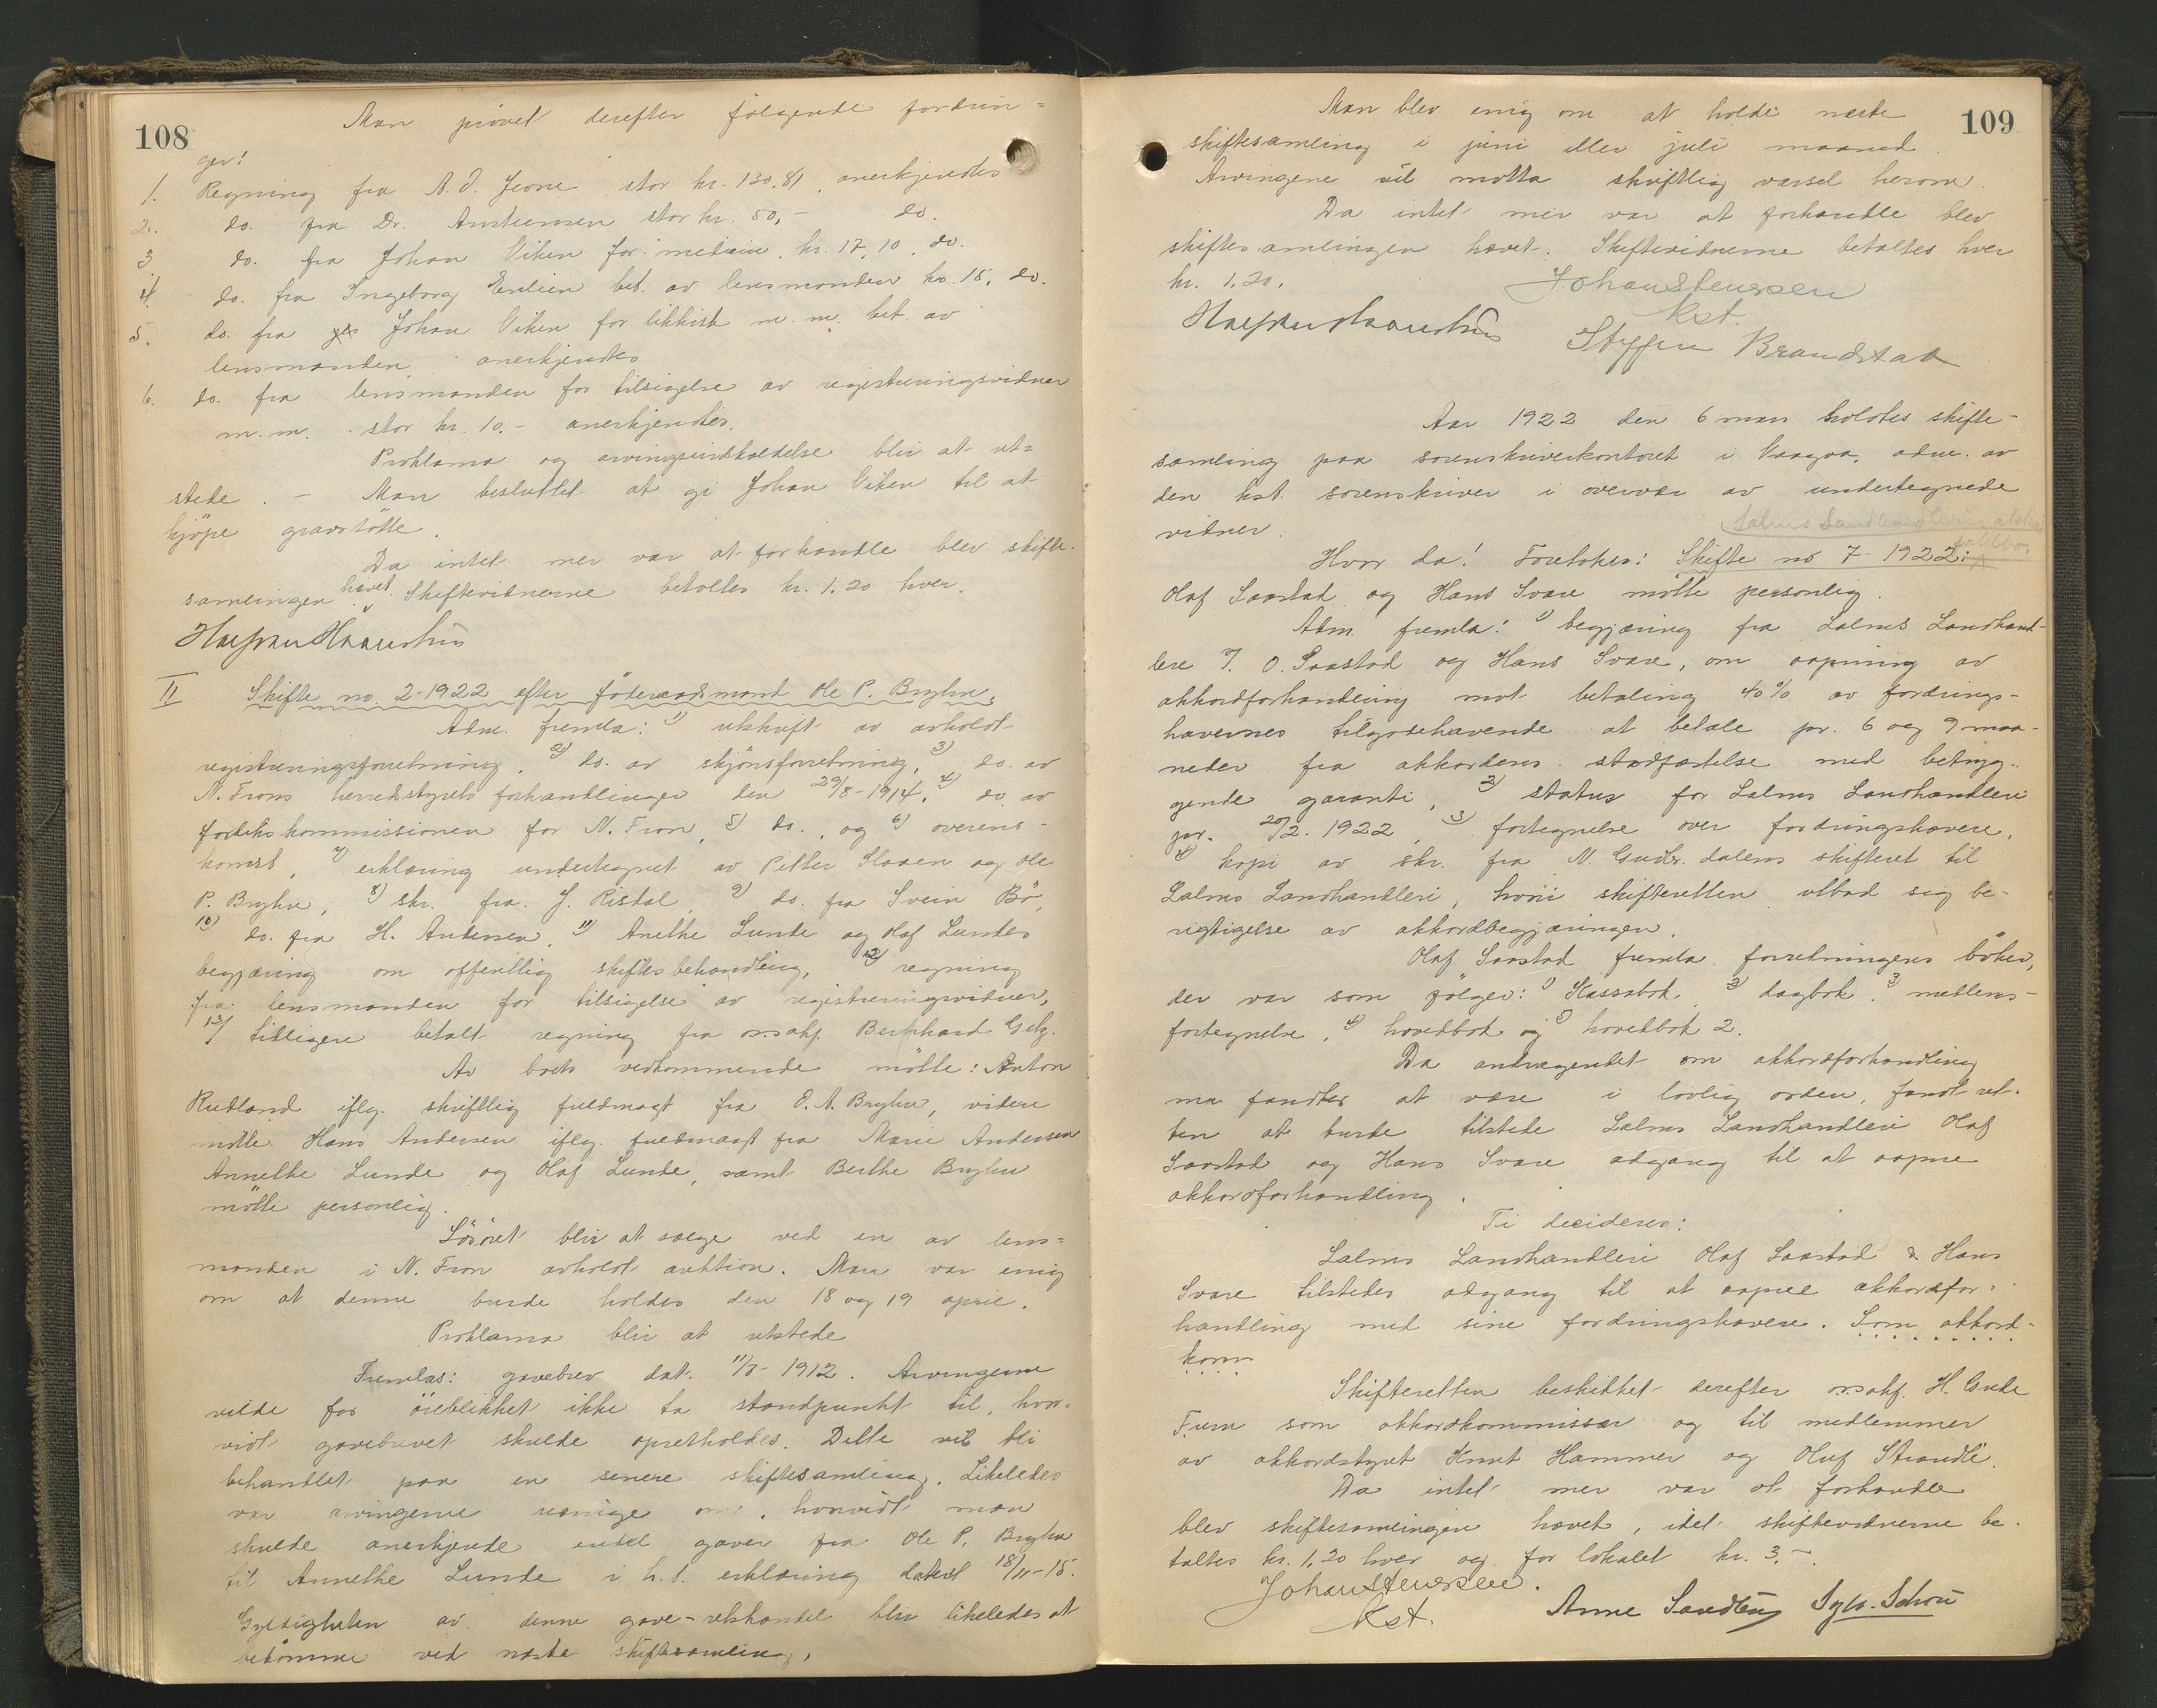 108
Man prövet derefter fölgende fordrin=
ger!
1. Regning fra A. J. Jevne stor kr. 130.81, anerkjendtes
2. do. fra Dr. Austeensen stor kr. 50,- do.
3 do. fra Johan Viken for medicin. kr. 17,10, do.
4. do. fra Ingeborg Enlien bet. av lensmanden kr. 15, do.
5. do. fra Johan Viken for likkiste m. m. bet. av
lensmanden anerkjendtes
6. do. fra lensmanden for tilsigelse av registreringsvidner
m. m. stor kr. 10.- anerkjendtes.
Proklama og arvingsindkaldelse blir at ut=
stede. - Man besluttet at gi Johan Viken til at
kjöpe gravstötte.
Da intet mer var at forhandle blev skifte-
samlingen hævet. Skiftevidnerne betaltes kr. 1.20 hver.
II Skifte no. 2-1922 efter föderaadsmand Ole P. Bryhn.
Adm. fremla: 1) utskrift av avholdt
registreringsforretning, 2) do. av skjönsforretning, 3) do. av
N. Frons herredstyrets forhandlinger den 29/8-1914, 4) do av
forliks kommissionen for N. Fron, 5) do., og 6) overens-
komst, 7) erklæring undertegnet av Petter Slaaen og Ole
P. Bryhn, 8) skr. fra J. Risdal, 9) do. fra Svein Bö,
10) do. fra H. Andersen, 11) Anethe Lunde og Olaf Lundes
begjæring om offentlig skiftesbehandling, 12) regning
fra lensmanden for tilsigelse av registreringsvidner,
13) tidligere betalt regning fra o.r.sakf. Bernhard Getz.
Av boets vedkommende mötte: Anton
Rudland iflg. skriftlig fuldmagt fra O. A. Bryhn, videre
mötte Hans Andersen iflg. fuldmagt fra Marie Andersen
Annethe Lunde og Olaf Lunde, samt Berthe Bryhn
mötte personlig.
Lösöret blir at sælge ved en av lens=
manden i N. Fron avholdt auktion. Man var enig
om at denne burde holdes den 18 og 19 april.
Proklama blir at utstede
Fremlas: gavebrev dat. 11/8-1912. Arvingerne
vilde for öieblikket ikke ta standpunkt til, hvor-
vidt gavebrevet skulde opretholdes. Dette vil bli
behandlet paa en senere skiftesamling. Likeledes
var arvingerne uenige om, hvorvidt man
skulde anerkjende endel gaver fra Ole P. Bryhn
til Annethe Lunde i h. t. erklæring datert 18/11-15.
Gyldigheten av denne gave-utskandel blir likeledes at
bedömme ved næste skiftesamling.
109
Man blev enig om at holde næste
skiftesamling i juni eller juli maaned.
Arvingene vil motta skriftlig varsel herom.
Da intet mer var at forhandle blev
skiftesamlingen hævet. Skiftevidnerne betaltes hver
kr. 1.20.
Johan Stenersen
Kst.
Steffen Brandstad
Aar 1922 den 6 mars holdtes skifte-
samling paa sorenskriverkontoret i Vaagaa, adm. av
den kst. sorenskriver i overvær av undertegnede
vidner.
Lalms Landhandleri akkordbo
Hvor da! Foretokes: Skifte no 7-1922:
Olaf Saastad og Hans Svare mötte personlig.
Adm. fremla: 1) begjæring fra Lalms Landhand-
leri v. O. Saastad og Hans Svare, om aapning av
akkordforhandling mot betaling 40% av fordrings-
havernes tilgodehavende at betale pr. 6 og 9 maa-
neder fra akkordens stadfæstelse med betryg-
gende garanti, 2) status for Lalms Landhandleri
pr. 20/2-1922, 3) fortegnelse over fordringshavere,
4) kopi av skr. fra N. Gudbr. dalens skifteret til
Lalms Landhandleri, hvori skifteretten utbad sig be-
rigtigelse av akkordbegjæringen.
Olaf Saastad fremla forretningens böker,
der var som fölger: 1) Kassabok. 2) dagbok. 3 medlems-
fortegnelse, 4) hovedbok og 5) hovedbok 2.
Da andragendet om akkordforhandling
maa fandtes at være i lovlig orden, fandt ret-
ten at burde tilstede Lalms Landhandleri Olaf
Saastad og Hans Svare adgang til at aapne
akkordforhandling.
Ti decideres:
Lalms Landhandleri Olaf Saastad & Hans
Svare tilstedes adgang til at aapne akkordfor-
handling med sine fordringshavere. Som akkord-
kom
Skifteretten beskikket derefter o.r.sakf. H. Gude
Furu som akkordkommissær og til medlemmer
av akkordstyret Knut Hammer og Oluf Strandli.
Da intet mer var at forhandle
blev skiftesamlingen hævet, idet skiftevidnerne be-
taltes kr. 1,20 hver og for lokalet kr. 3,-.
Johan Stenersen.
Kst.
Anne Sandbu Sylv. Schou